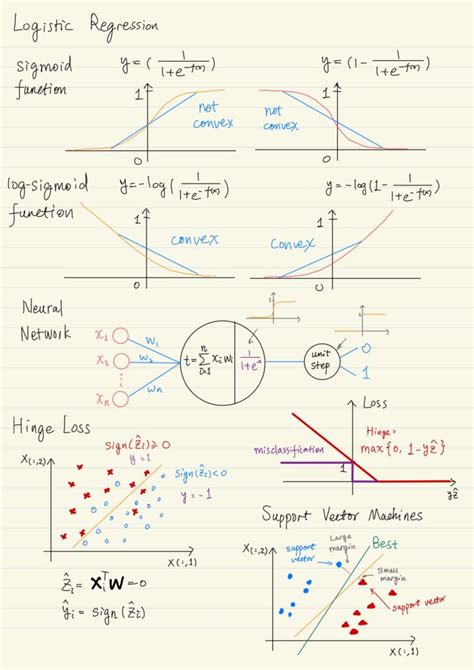 Logistic Regression
sigmoid function
y = ( 1 / 1+e^-f(x) )
y = (1 - 1 / 1+e^-f(x) )
1
not convex
0
1
not convex
0
log-sigmoid function
y=-log( 1 / 1+e^-f(x) )
y=-log(1- 1 / 1+e^-f(x) )
1
convex
0
1
Convex
0
Neural Network
x₁
x₂
⋮
xₙ
w₁
w₂
wₙ
t=∑ⁿᵢ₌₁ xᵢwᵢ
1 / 1+e^-t
1
unit step
1
0
1
Hinge Loss
sign(ẑᵢ)≥0
y=1
X(:,2)
sign(ẑᵢ)<0
y=-1
X(:,1)
ẑᵢ = xᵢᵀW=0
ŷᵢ = sign(ẑᵢ)
Loss
Hinge=
max{0, 1-yẑ}
misclassification
1
yẑ
Support Vector Machines
X(:,2)
support vector
Large margin
Best
Small margin
support vector
X(:,1)